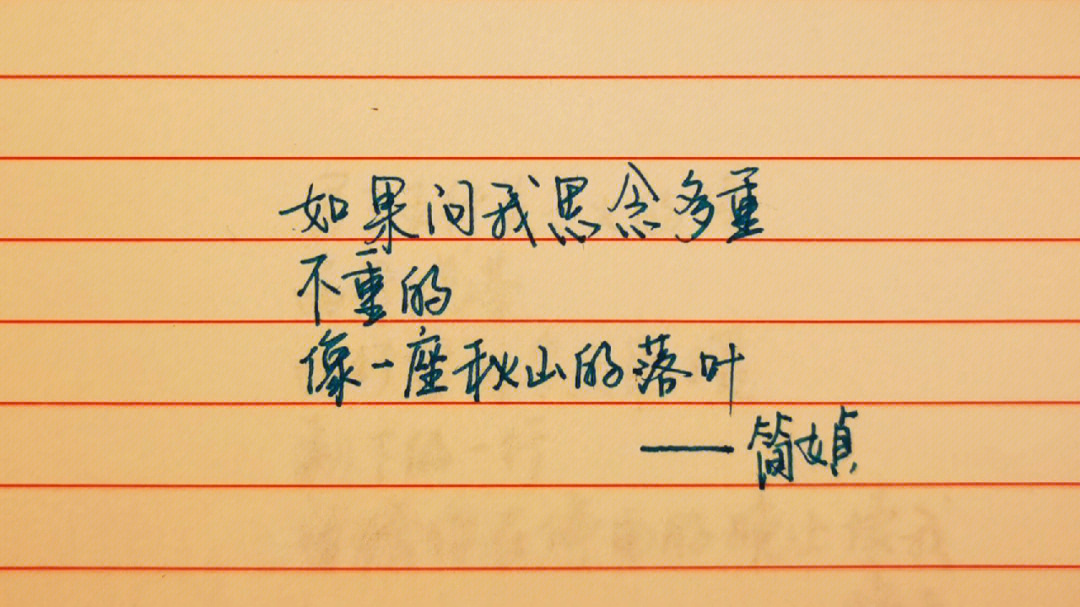 如果问我思念多重
不重的
像一座秋山的落叶
——简媜